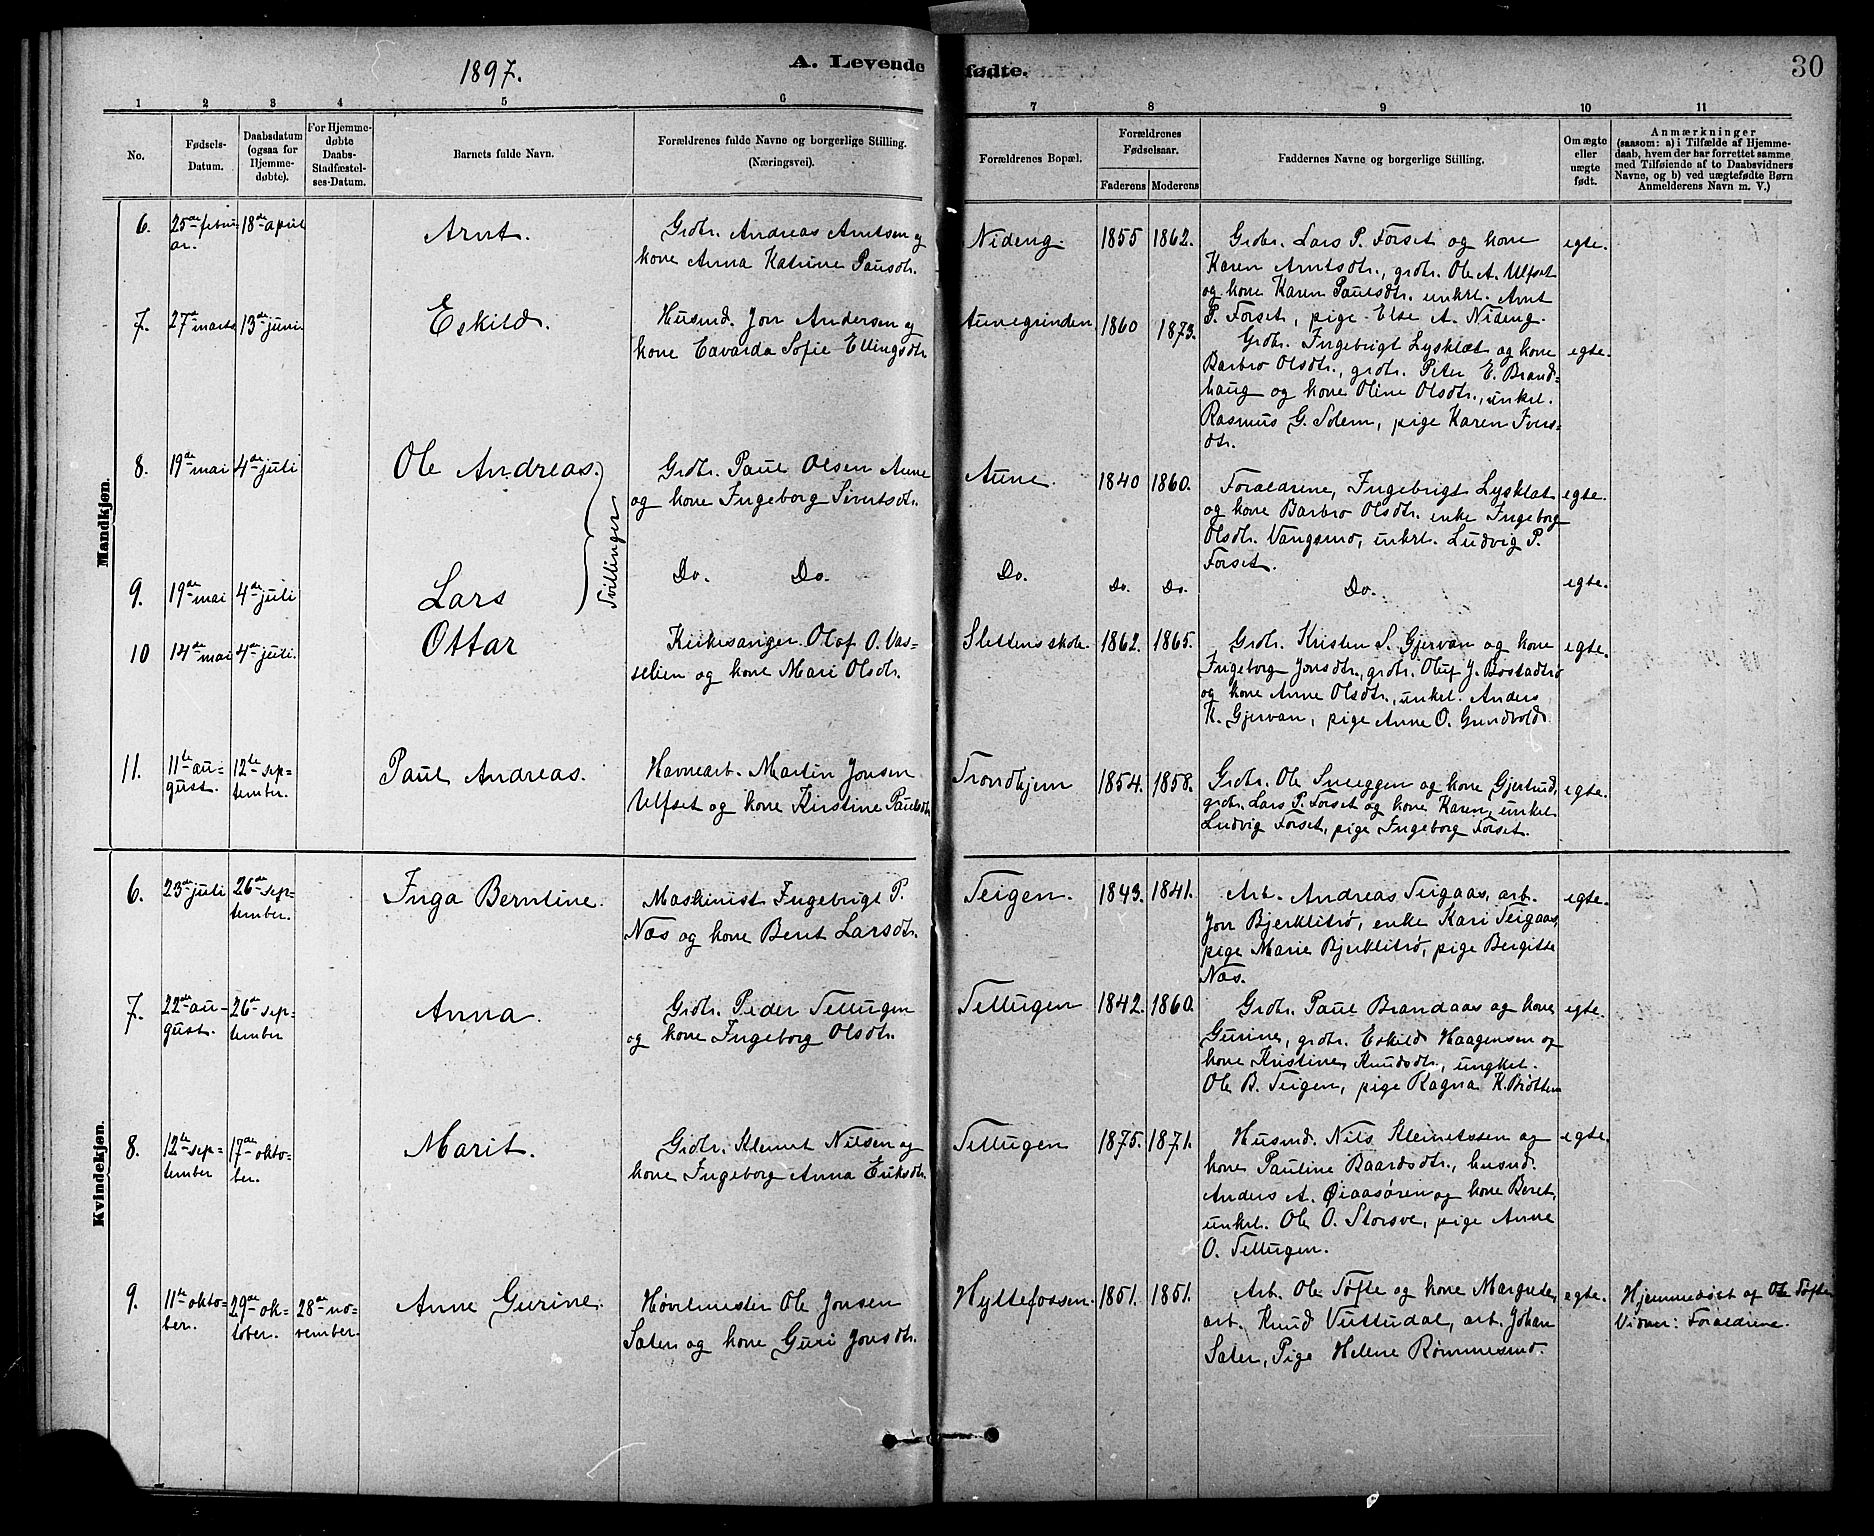 1897.
A. Levende fødte.
30
1 2 3 4 5 6 7 8 9 10 11
No.
Fødsels-
Datum.
Daabsdatum
(ogsaa for
Hjemme-
døbte).
For Hjemme-
døbte
Daabs-
Stadfæstel-
ses-Datum.
Barnets fulde Navn.
Forældrenes fulde Navne og borgerlige Stilling.
(Næringsvei).
Forældrenes Bopæl.
Forældrenes
Fødselsaar.
Faderens Moderens
Faddernes Navne og borgerlige Stilling.
Om ægte
eller
uægte
født.
Anmærkninger
(saasom: a) i Tilfælde af Hjemme-
daab, hvem der har forrettet samme
med Tilføiende af to Daabsvidners
Navne, og b) ved uægtefødte Børn
Anmelderens Navn m. V.)
Mandkjøn.
6.
25de febru
ar.
18de april
Arnt.
Grdbr. Andreas Arntsen og
kone Anna Katrine Paulsdtr.
Nideng.
1855 1862.
Grdbr. Lars P. Forset og kone
Karen Arntsdtr., grdbr. Ole A. Ulfset
og kone Karen Paulsdtr. unkrl. Arnt
P. Forset, pige Else A. Nideng.
egte.
7.
27de marts
13de juni
Eskild.
Husmd. Jon Andersen og
kone Edvarda Sofie Ellingsdtr
Aunegrinden
1860 1873.
Grdbr. Ingebrigt Lysklæt og kone
Barbro Olsdtr., grdbr. Peter E. Brands=
haug og kone Oline Olsdtr., unkrl.
Rasmus G. Solem, pige Karen Ivers
dtr.
egte.
8.
19de mai
4de juli
Ole Andreas.
Tvillinger
Grdbr. Paul Olsen Aune
og kone Ingeborg Sivertsdtr.
Aune.
1840 1860.
Forældrene, Ingebrigt Lysklæt
og kone Barbro Olsdtr. enke Ingeborg
Olsdtr. Vangsmo, unkrl. Ludvig P.
Forset.
egte.
9.
19de mai
4de juli
Lars
Do. Do.
Do.
Do. Do.
Do.
egte.
10
14de mai
4de juli.
Ottar
Kirkesanger Olaf O. Vas=
selien og kone Mari Olsdtr.
Slettens skole.
1862. 1865.
Grdbr. Kristen S. Gjervan og kone
Ingeborg Jonsdtr., grdbr. Oluf J. Bostadtrø
og kone Anne Olsdtr., unkrl. Anders
K. Gjervan, pige Anne O. Grendvold.
egte.
11.
11te au=
gust.
12te sep=
tember.
Paul Andreas.
Havnearb. Martin Jonsen
Ulfset og kone Kirstine Paulsdtr
Trondhjem
1854. 1858.
Grdbr. Ole Sneeggen og kone Gjertrud,
grdbr. Lars P. Forset og kone Karen, unkrl.
Ludvig Forset, pige Ingeborg Forset.
egte.
Kvindekjøn.
6.
23de juli
26de sep=
tember.
Inga Berntine.
Maskinist Ingebrigt P.
Næs og kone Beret Larsdtr.
Teigen.
1843. 1841.
Arb. Andreas Teigaas, arb.
Jon Bjerklitrø, enke Kari Teigaas,
pige Marie Bjerklitrø, pige Bergitte
Næs.
egte.
7.
22de au=
gust.
26de sep=
tember
Anna.
Grdbr. Peder Tellugen
og kone Ingeborg Olsdtr.
Tellugen
1842. 1860.
Grdbr. Paul Brandaas og kone
Gurine, grdbr. Eskild Haagensen og
kone Kristine Knudsdtr., ungkrl.
Ole B. Teigen, pige Ragna K. Brøtten
egte.
8.
12te sep=
tember
17de okto=
ber.
Marit.
Grdbr. Klemet Nilsen og
kone Ingeborg Anna Eriksdtr.
Tellugen
1875. 1871.
Husmd. Nils Klemetssen og
kone Pauline Baardsdtr., husmd.
Anders A. Øiaasøren og kone Beret,
unkrl. Ole O. Storsve, pige Anne
O. Tellugen.
egte.
9.
11te okto=
ber.
29de ok=
tober.
28de no=
vember.
Anne Gurine.
Høvlmester Ole Jonsen
Sæter og kone Guri Jonsdtr.
Hyttefossen.
1851. 1851.
Arb. Ole Tøfte og kone Margrete,
arb. Knud Vuttudal, arb. Johan
Sæter, Pige Helene Rømmesmo.
egte.
Hjemmedøbt af Ole Tøfte
Vidner: Forældrene.